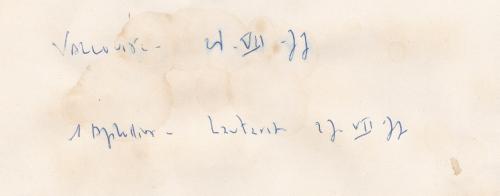 Vallouise - VII - 77
1 Aphodius - Lautaret 27 VII 77